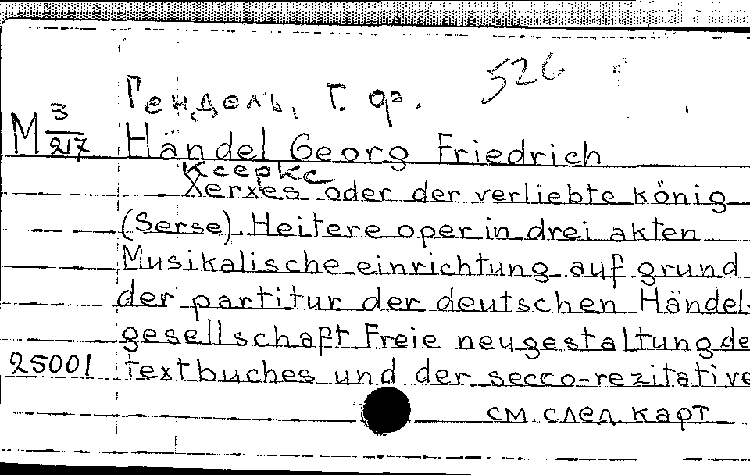 526
Гендель, Г. Ф.
М 3/217 Händel Georg Friedrich
Ксеркс
Xerxes oder der verliebte könig
(Serse). Heitere oper in drei akten
Musikalische einrichtung auf grund
der partitur der deutschen Händel-
gesellschaft Freie neugestaltung de
25001 textbuches und der secco-rezitative
см. след карт